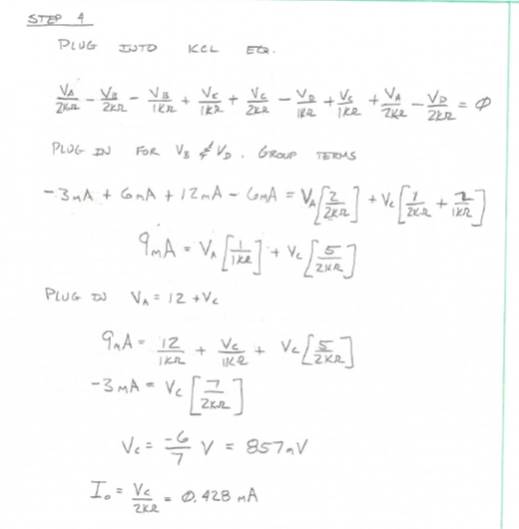 STEP 4
PLUG INTO KCL EQ.
VA/2KΩ - VB/2KΩ - VB/1KΩ + VC/1KΩ + VC/2KΩ - VD/1KΩ + VC/1KΩ + VA/2KΩ - VD/2KΩ = 0
PLUG IN FOR VB & VD. GROUP TERMS
-3mA + 6mA + 12mA - 6mA = VA[2/2KΩ] + VC[1/2KΩ + 2/1KΩ]
9mA = VA[1/1KΩ] + VC[5/2KΩ]
PLUG IN VA = 12 + VC
9mA = 12/1KΩ + VC/1KΩ + VC[5/2KΩ]
-3mA = VC[7/2KΩ]
VC = -6/7 V = 857mV
Io = VC/2KΩ = 0.428 mA